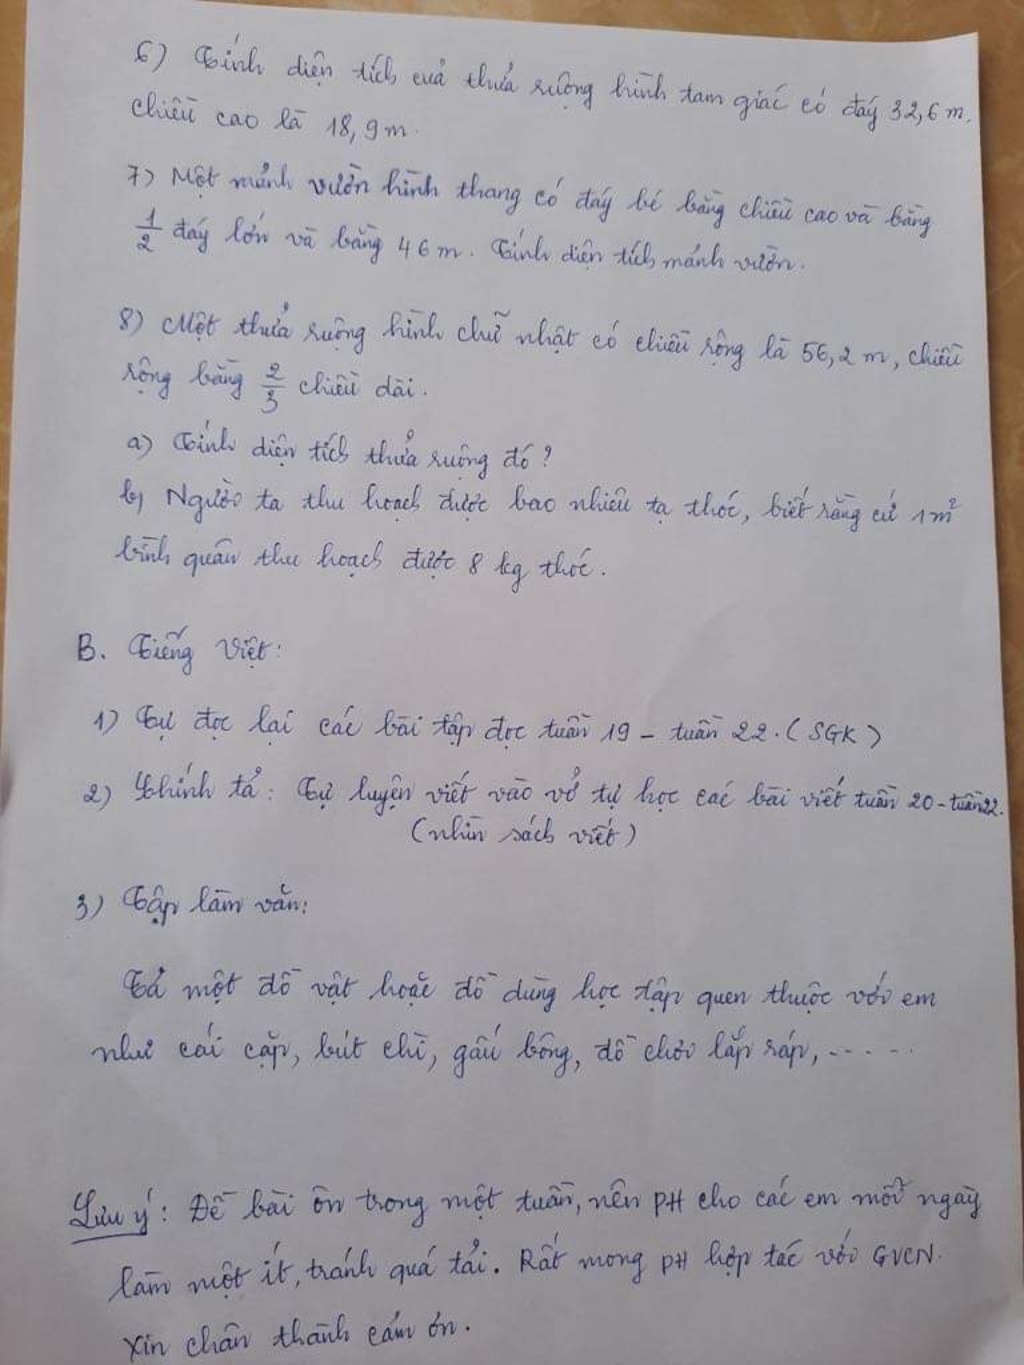 6) Tính diện tích của thửa ruộng hình tam giác có đáy 32,6 m,
chiều cao là 18,9 m.
7) Một mảnh vườn hình thang có đáy bé bằng chiều cao và bằng
1/2 đáy lớn và bằng 46 m. Tính diện tích mảnh vườn.
8) Một thửa ruộng hình chữ nhật có chiều rộng là 56,2 m, chiều
rộng bằng 2/3 chiều dài.
a) Tính diện tích thửa ruộng đó?
b) Người ta thu hoạch được bao nhiêu tạ thóc, biết rằng cứ 1m²
bình quân thu hoạch được 8 kg thóc.
B. Tiếng Việt:
1) Tự đọc lại các bài tập đọc tuần 19 - tuần 22. (SGK)
2) Chính tả: Tự luyện viết vào vở tự học các bài viết tuần 20 - tuần 22.
(nhìn sách viết)
3) Tập làm văn:
Tả một đồ vật hoặc đồ dùng học tập quen thuộc với em
như cái cặp, bút chì, gấu bông, đồ chơi lắp ráp, -----
Lưu ý: Đề bài ôn trong một tuần, nên PH cho các em mỗi ngày
làm một ít, tránh quá tải. Rất mong PH hợp tác với GVCN.
Xin chân thành cám ơn.